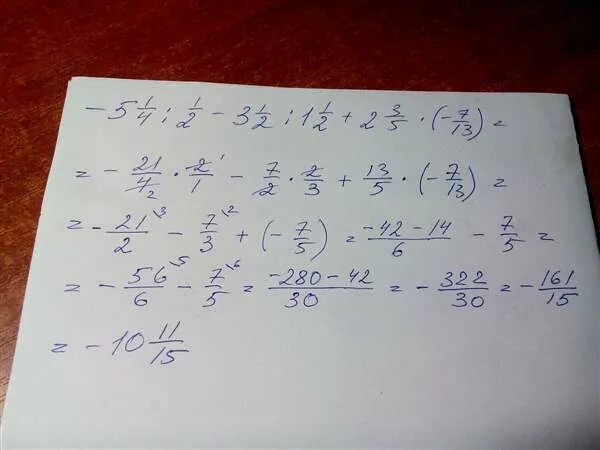 -5 1/4 : 1/2 - 3 1/2 : 1 1/2 + 2 3/5 · (-7/13) =
= - 21/4 2 · 2 1/1 - 7/2 · 2/3 + 13/5 · (-7/13) =
= - 21 3/2 - 7 2/3 + (- 7/5) = -42 - 14/6 - 7/5 =
= - 56 5/6 - 7 6/5 = -280 - 42/30 = - 322/30 = - 161/15
= - 10 11/15